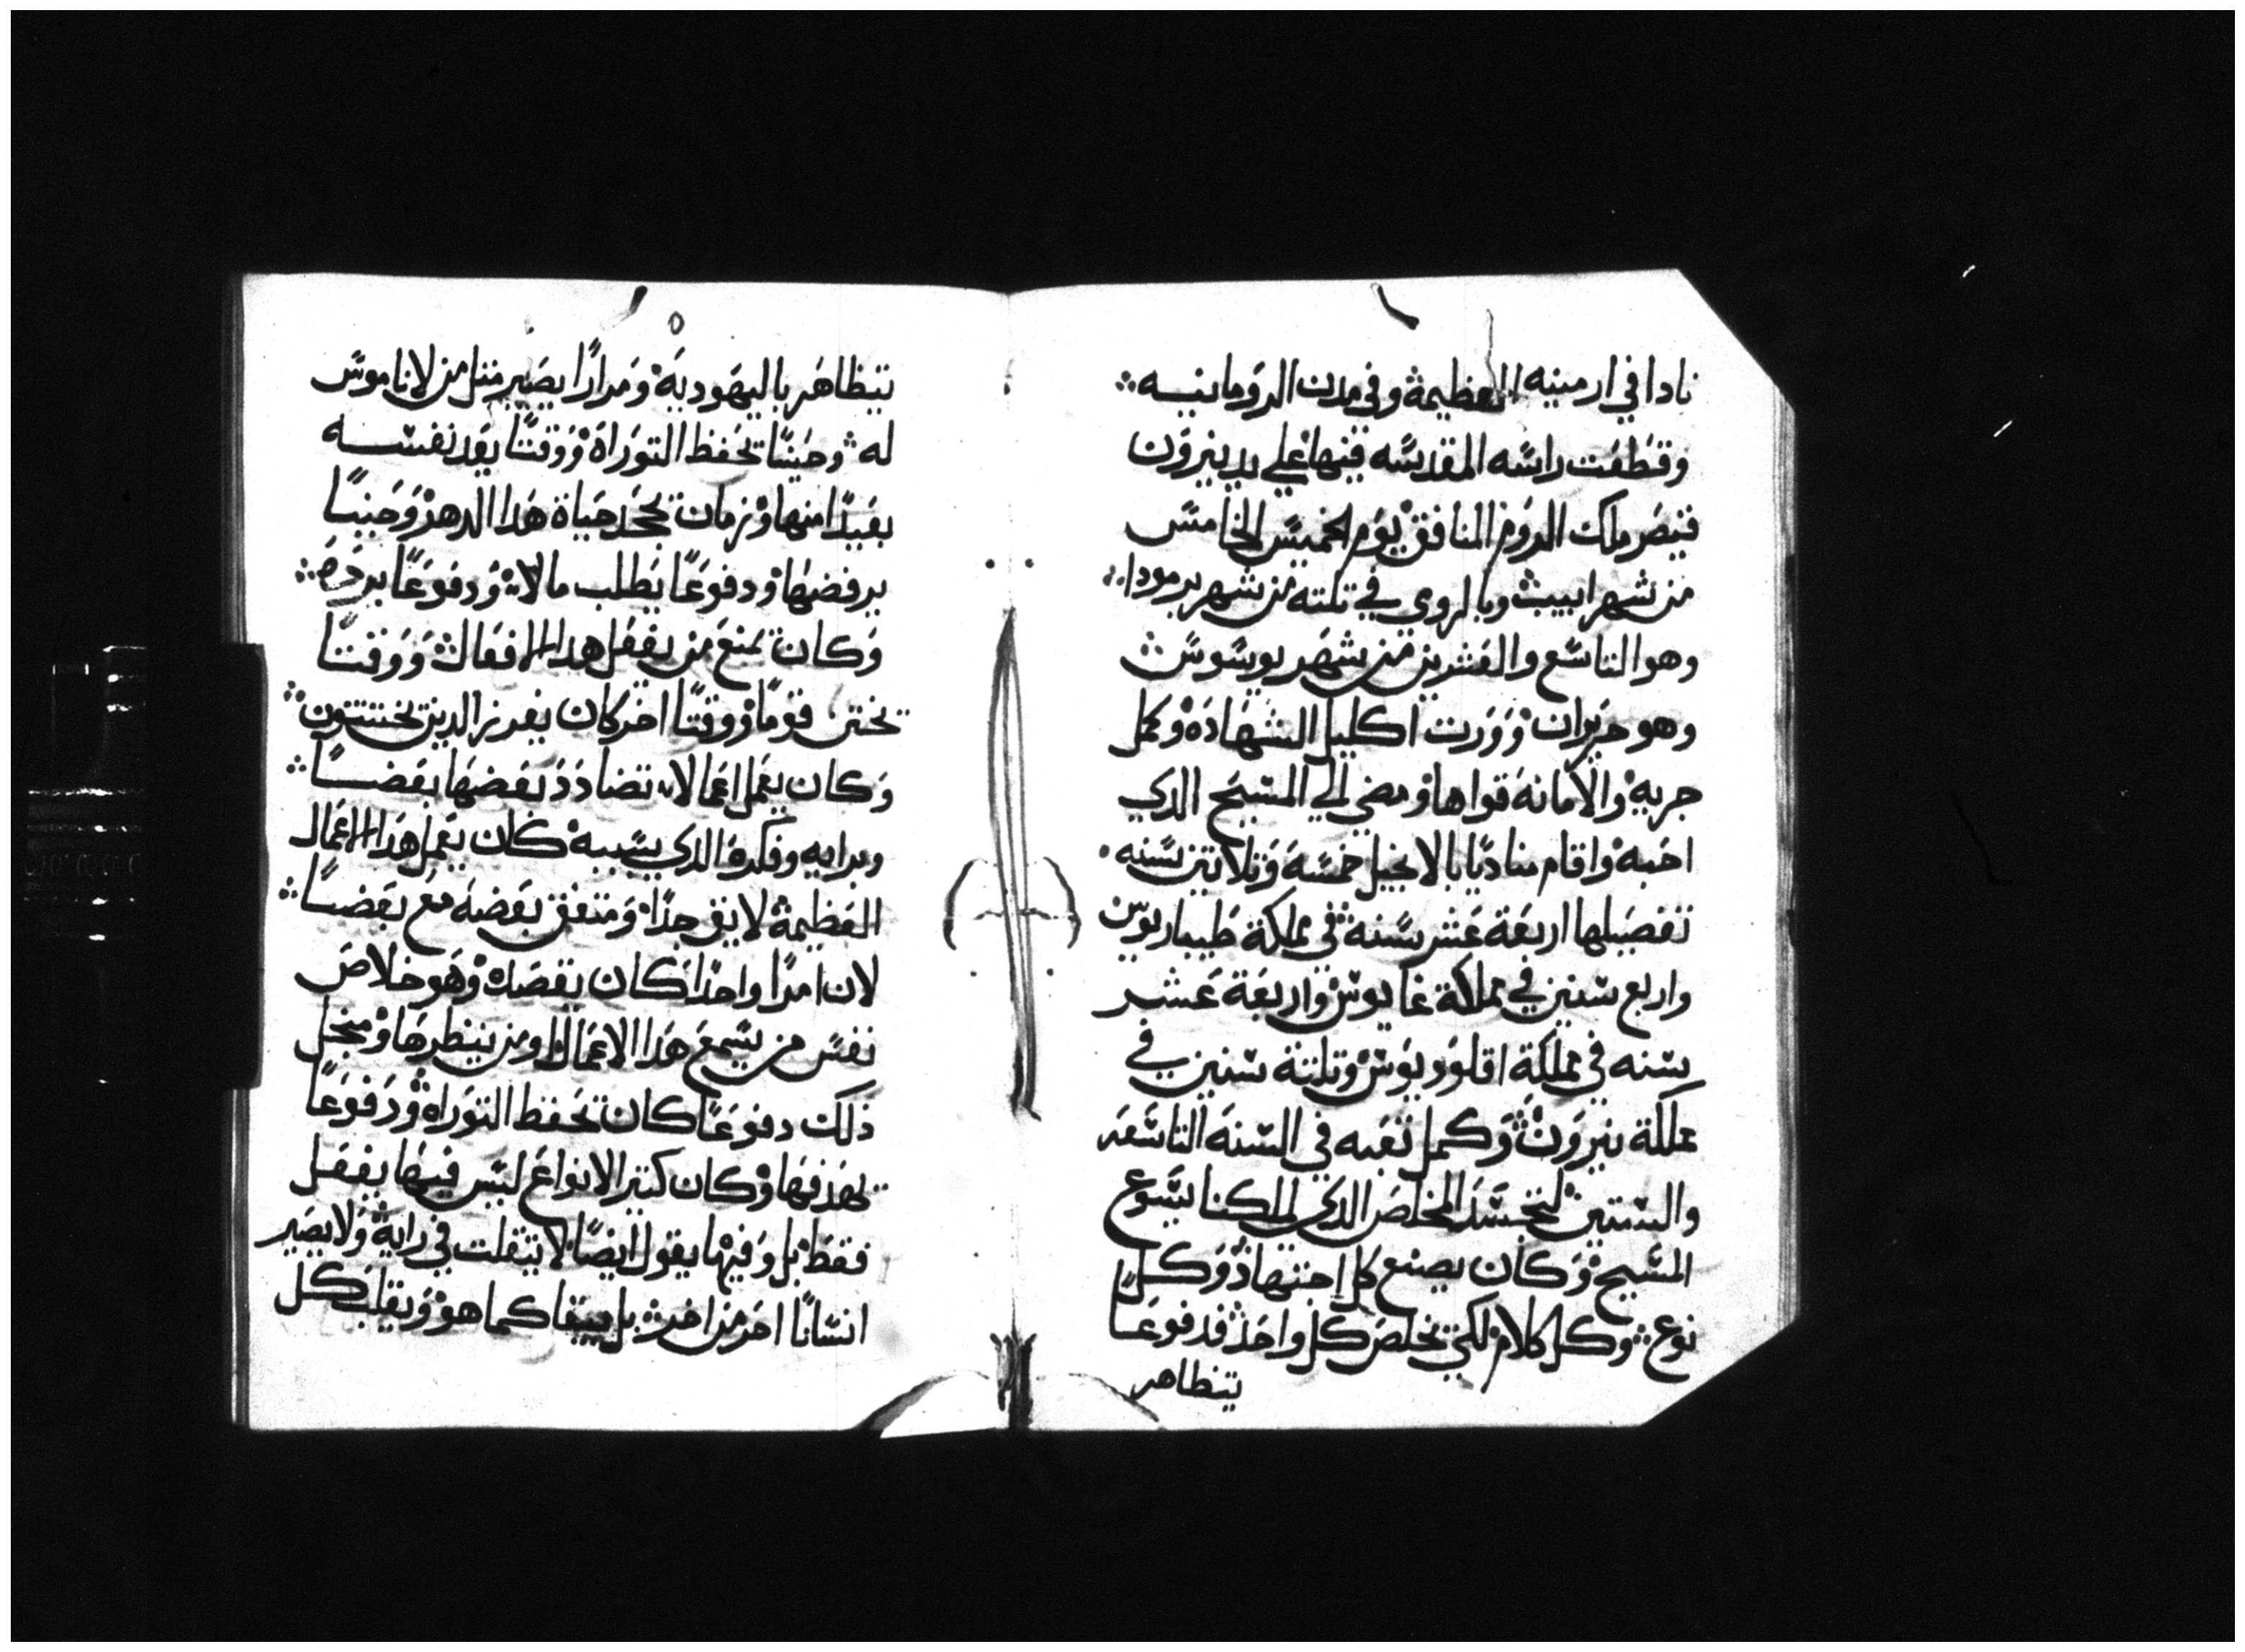 نادا في ارمينيه العظيمة وفي مدن الرومانيه
وقطعت راسه المقدسه فيها علي يد نيرون
قيصر ملك الروم المنافق يوم الخميس الخامس
من شهر ابيب وبالرومي في تلته من شهر برمودا
وهو التاسع والعشرين من شهر يوسوس
وهو حزيران وورت اكليل الشهادة وكمل
جريه والامانة قواها ومضي الي المسيح الدي
احبه واقام مناديًا بالانجيل خمسة وتلاتين سنه
تفصيلها اربعة عشر سنة في مملكة طيباريوس
واربع سنين في مملكة غايوس واربعة عشر
سنه في مملكة اقلوديوس وتلتة سنين في
مملكة نيرون وكمل تعبه في السنة التاسعه
والستين لتجسد المخلص الدي لملكنا يسوع
المسيح وكان يصنع كل اجتهاد وكل
نوع وكل كلام لكي يخلص كل واحد فدفوعًا
يتظاهر
٥
يتظاهر باليهودية ومرارًا يصير متل من لا ناموس
له وحينًا يحفظ التوراة ووقتًا يعد نفسه
بعيدًا منها وزمان يجحد حياة هدا الدهر وحينًا
يرفضها ودفوعًا يطلب مالا ودفوعًا يرده
وكان يمنع من يفعل هدا الافعال ووقتًا
يختن قومًا ووقتًا اخر كان يفرز الدين يختتنون
وكان يعمل اعمالا تضادد بعضها بعضًا
وبرايه وفكره الدي بسببه كان يعمل هدا الاعمال
العظيمة لايق جدًا ومتفق بعضه مع بعضًا
لان امرًا واحدًا كان يقصده وهو خلاص
نفس من يسمع هدا الاعمال ومن ينظرها ومن اجل
دلك دفوعًا كان يحفظ التوراه ودفوعًا
يهدفها وكان كتير الانواع ليس فيها يفعل
فقط بل وفيما يقول ايضًا لا يتفلت في رايه ولا يصير
انسانًا اخر من اخر بل يبقا كما هو ويقلب كل